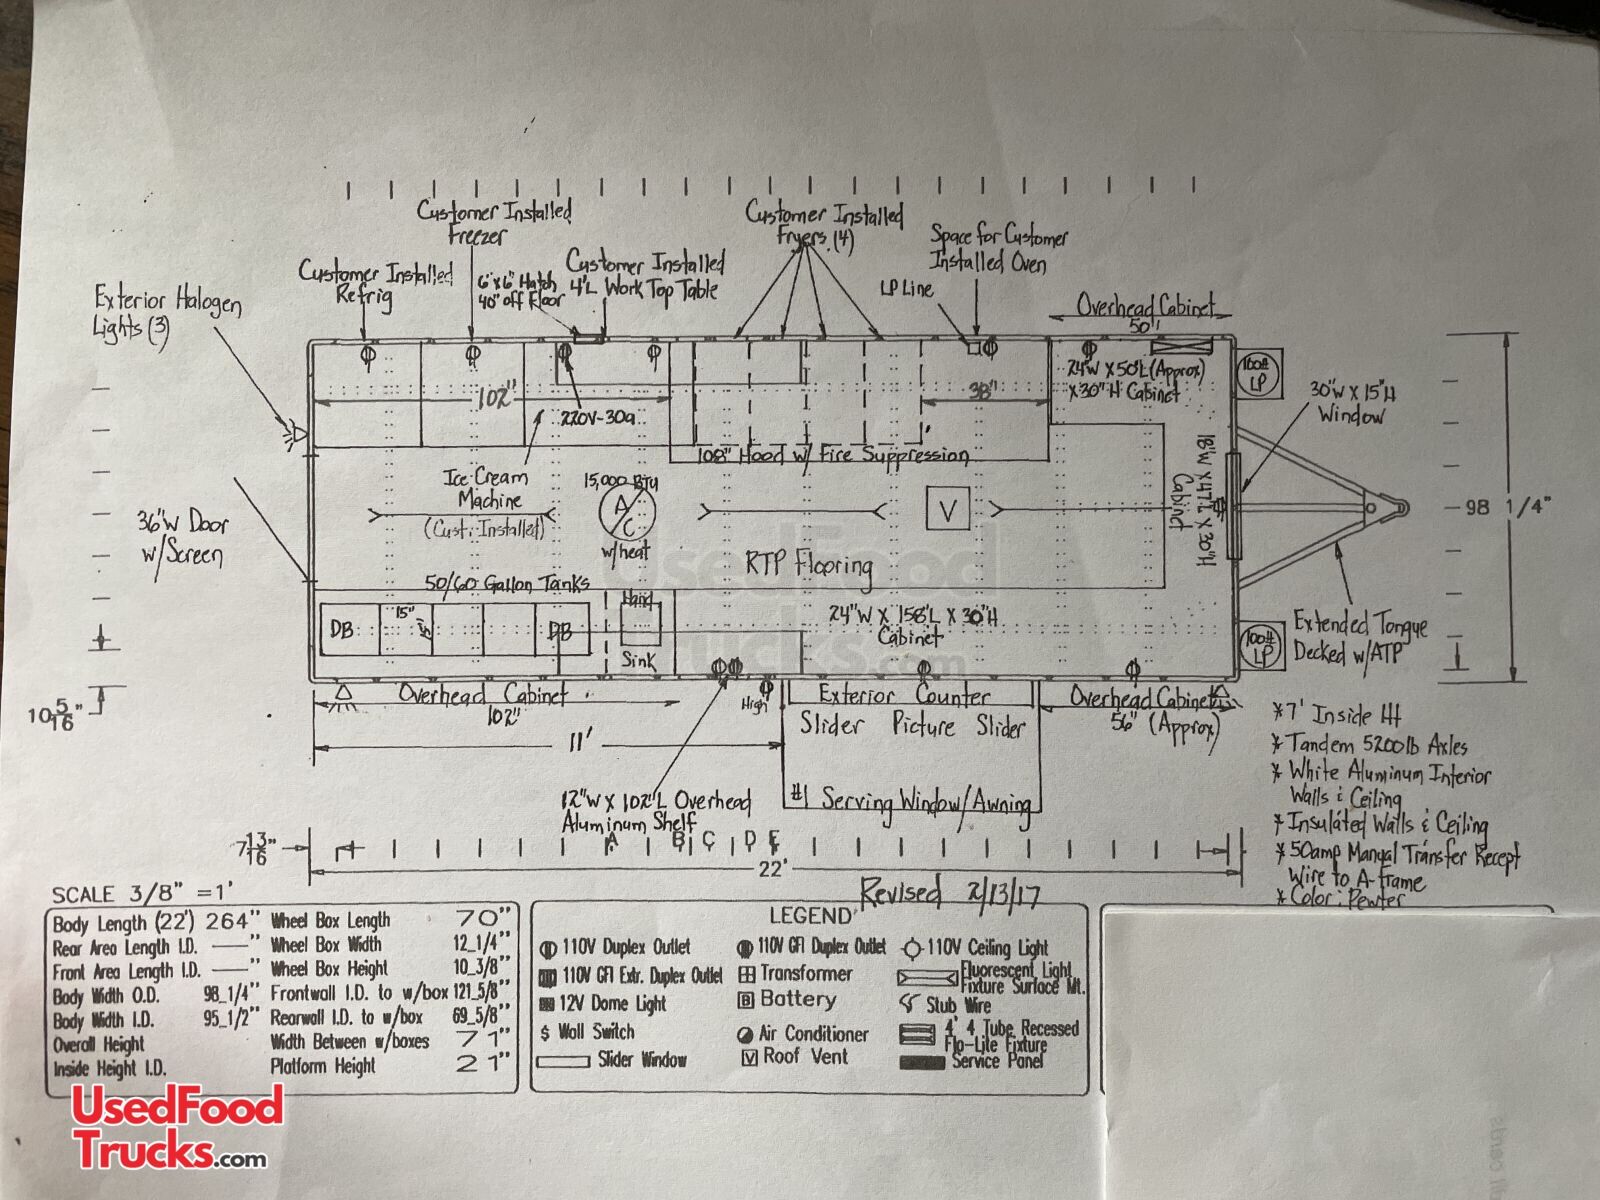 Customer Installed
Freezer
Customer Installed
Fryers (4)
Space for Customer
Installed Oven
Customer Installed
Refrig
6"x6" Hatch
40" off Floor
Customer Installed
4'L Work Top Table
LP Line
Exterior Halogen
Lights (3)
Overhead Cabinet
50"
24"W X 50"L (Approx)
X 30"H Cabinet
100#
LP
30"W X 15"H
Window
102"
220V-30a
38"
108" Hood w/ Fire Suppression
18"W X 47"L X 30"H
Cabinet
Ice Cream
Machine
(Cust. Installed)
15,000 BTU
A/C
w/heat
V
98 1/4"
36"W Door
w/Screen
RTP Flooring
UsedFood
Trucks.com
50/60 Gallon Tanks
DB
15"
DB
Hand
Sink
24"W X 158"L X 30"H
Cabinet
100#
LP
Extended Tongue
Decked w/ATP
10 5/16"
Overhead Cabinet
102"
High
Exterior Counter
Slider Picture Slider
Overhead Cabinet
56" (Approx)
11'
12"W X 102"L Overhead
Aluminum Shelf
#1 Serving Window/Awning
*7' Inside Ht
*Tandem 5200lb Axles
*White Aluminum Interior
Walls & Ceiling
*Insulated Walls & Ceiling
*50amp Manual Transfer Recept
Wire to A-frame
*Color: Pewter
7 13/16"
A B C D E
22'
Revised 2/13/17
SCALE 3/8" =1'
Body Length (22') 264" Wheel Box Length 70"
Rear Area Length I.D. —" Wheel Box Width 12_1/4"
Front Area Length I.D. —" Wheel Box Height 10_3/8"
Body Width O.D. 98_1/4" Frontwall I.D. to w/box 121_5/8"
Body Width I.D. 95_1/2" Rearwall I.D. to w/box 69_5/8"
Overall Height Width Between w/boxes 71"
Inside Height I.D. Platform Height 21"
LEGEND
110V Duplex Outlet 110V GFI Duplex Outlet 110V Ceiling Light
110V GFI Extr. Duplex Outlet Transformer Fluorescent Light
Fixture Surface Mt.
12V Dome Light B Battery Stub Wire
$ Wall Switch Air Conditioner 4' 4 Tube Recessed
Flo-Lite Fixture
Slider Window V Roof Vent Service Panel
UsedFood
Trucks.com